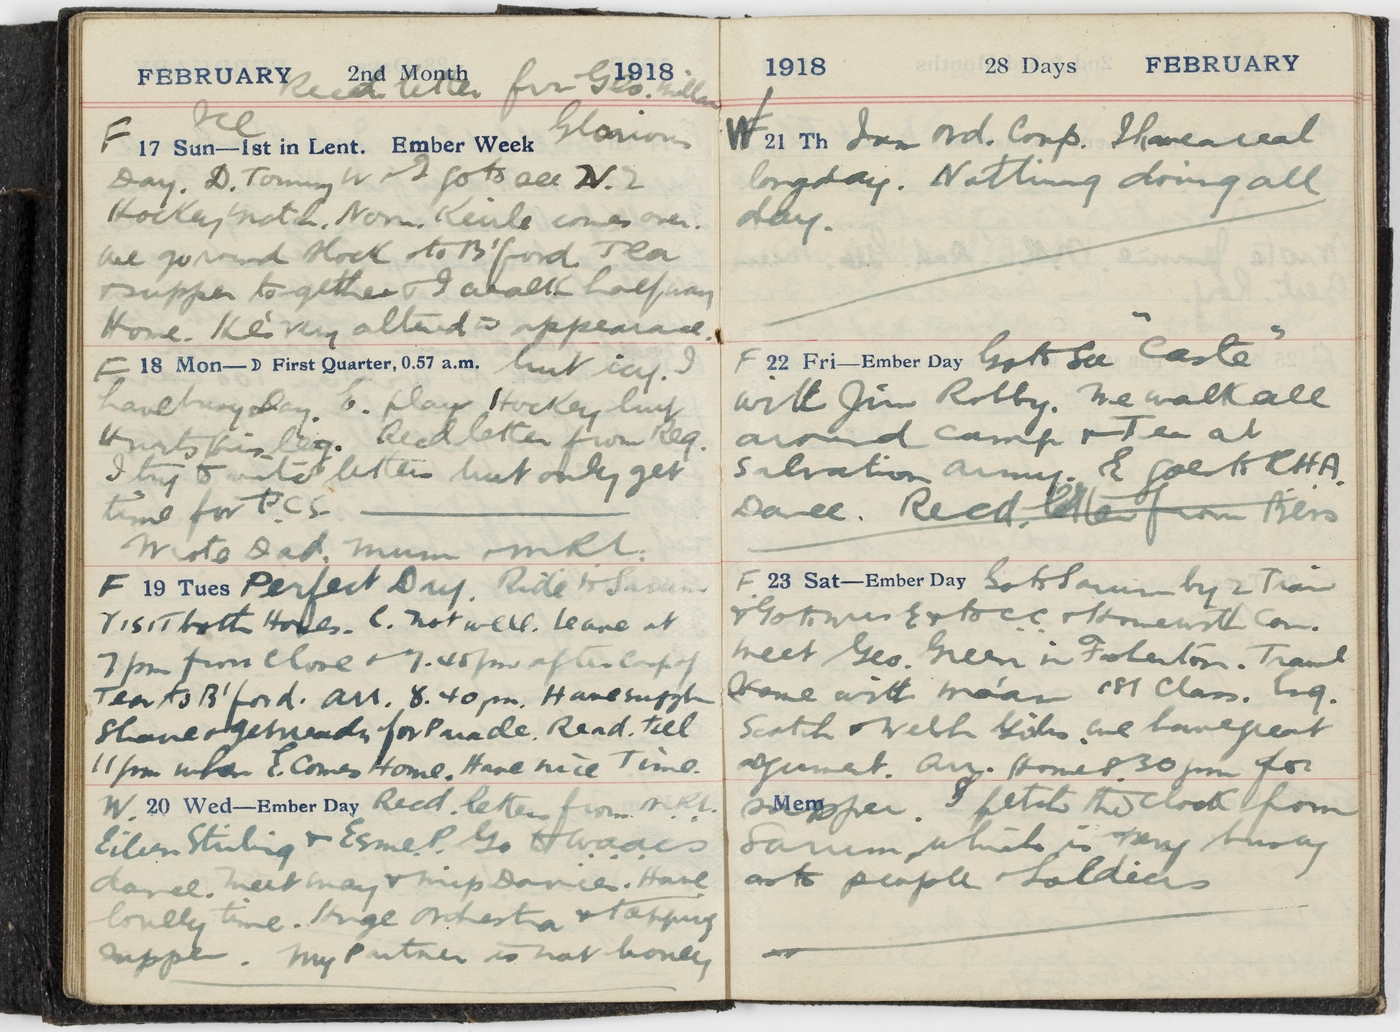 FEBRUARY 2nd Month 1918
Recd letter from Geo. Miller
Ice
F 17 Sun—1st in Lent. Ember Week Glorious
Day. D. Tommy W & I go to see N.Z
Hockey match. Norm. Keirle comes over.
we go round Block to B'ford. Tea
& supper together & I walk halfway
Home. He's very altered in appearance.
F 18 Mon—D First Quarter, 0.57 a.m. but icy. I
have busy Day. E. plays Hockey but
Hurts his leg. Recd letter from Reg.
I try to write letters but only get
time for P.C's
Wrote Dad, Mum
F 19 Tues Perfect Day. Ride to Sarum
Visit both Homes. C. not well. Leave at
7 pm from Close & 7.45 pm after Cup of
Tea to B'ford. Arr. 8.40 pm. Have supper
Shave & get ready for Parade. Read. till
11 pm when E. Comes Home. Have nice Time.
W. 20 Wed—Ember Day Recd. letters from
Eileen Stirling & Esme P. Go to Waacs
dance. Meet May & Miss Davies. Have
lovely time. Huge Orchestra & topping
supper. My Partner is not lonely
1918 28 Days FEBRUARY
W 21 Th I am Ord. Corp. I have a real
long day. Nothing doing all
day.
F 22 Fri—Ember Day Go to See "Caste"
with Jim Robby. We walk all
around camp & Tea at
Salvation Army. E goes to R.H.A.
Dance. Recd. letter from
F 23 Sat—Ember Day Go to Sarum by 2 Train
& Go to & to C.C & Home with Con.
meet Geo. Green in Fisherton. Travel
Home with 1st Class. Eng.
Scotch & Welsh Girls. we have great
argument. Arr. Home 8.30 pm for
Mem
supper. I fetch the Clock from
Sarum, which is very busy
as to people & Soldiers